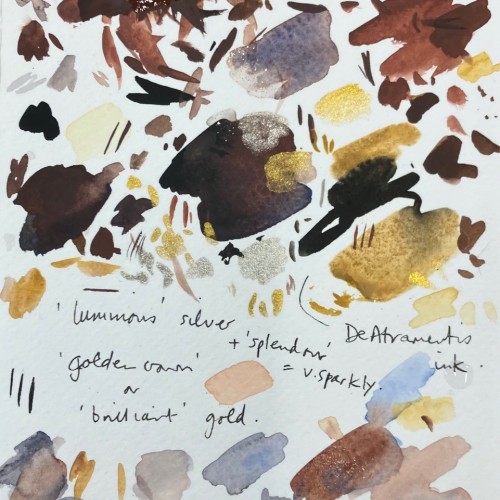 'luminous' silver
+ 'splendour' DeAtramentis
'golden crown' = v.sparkly. ink.
or
'brilliant' gold.